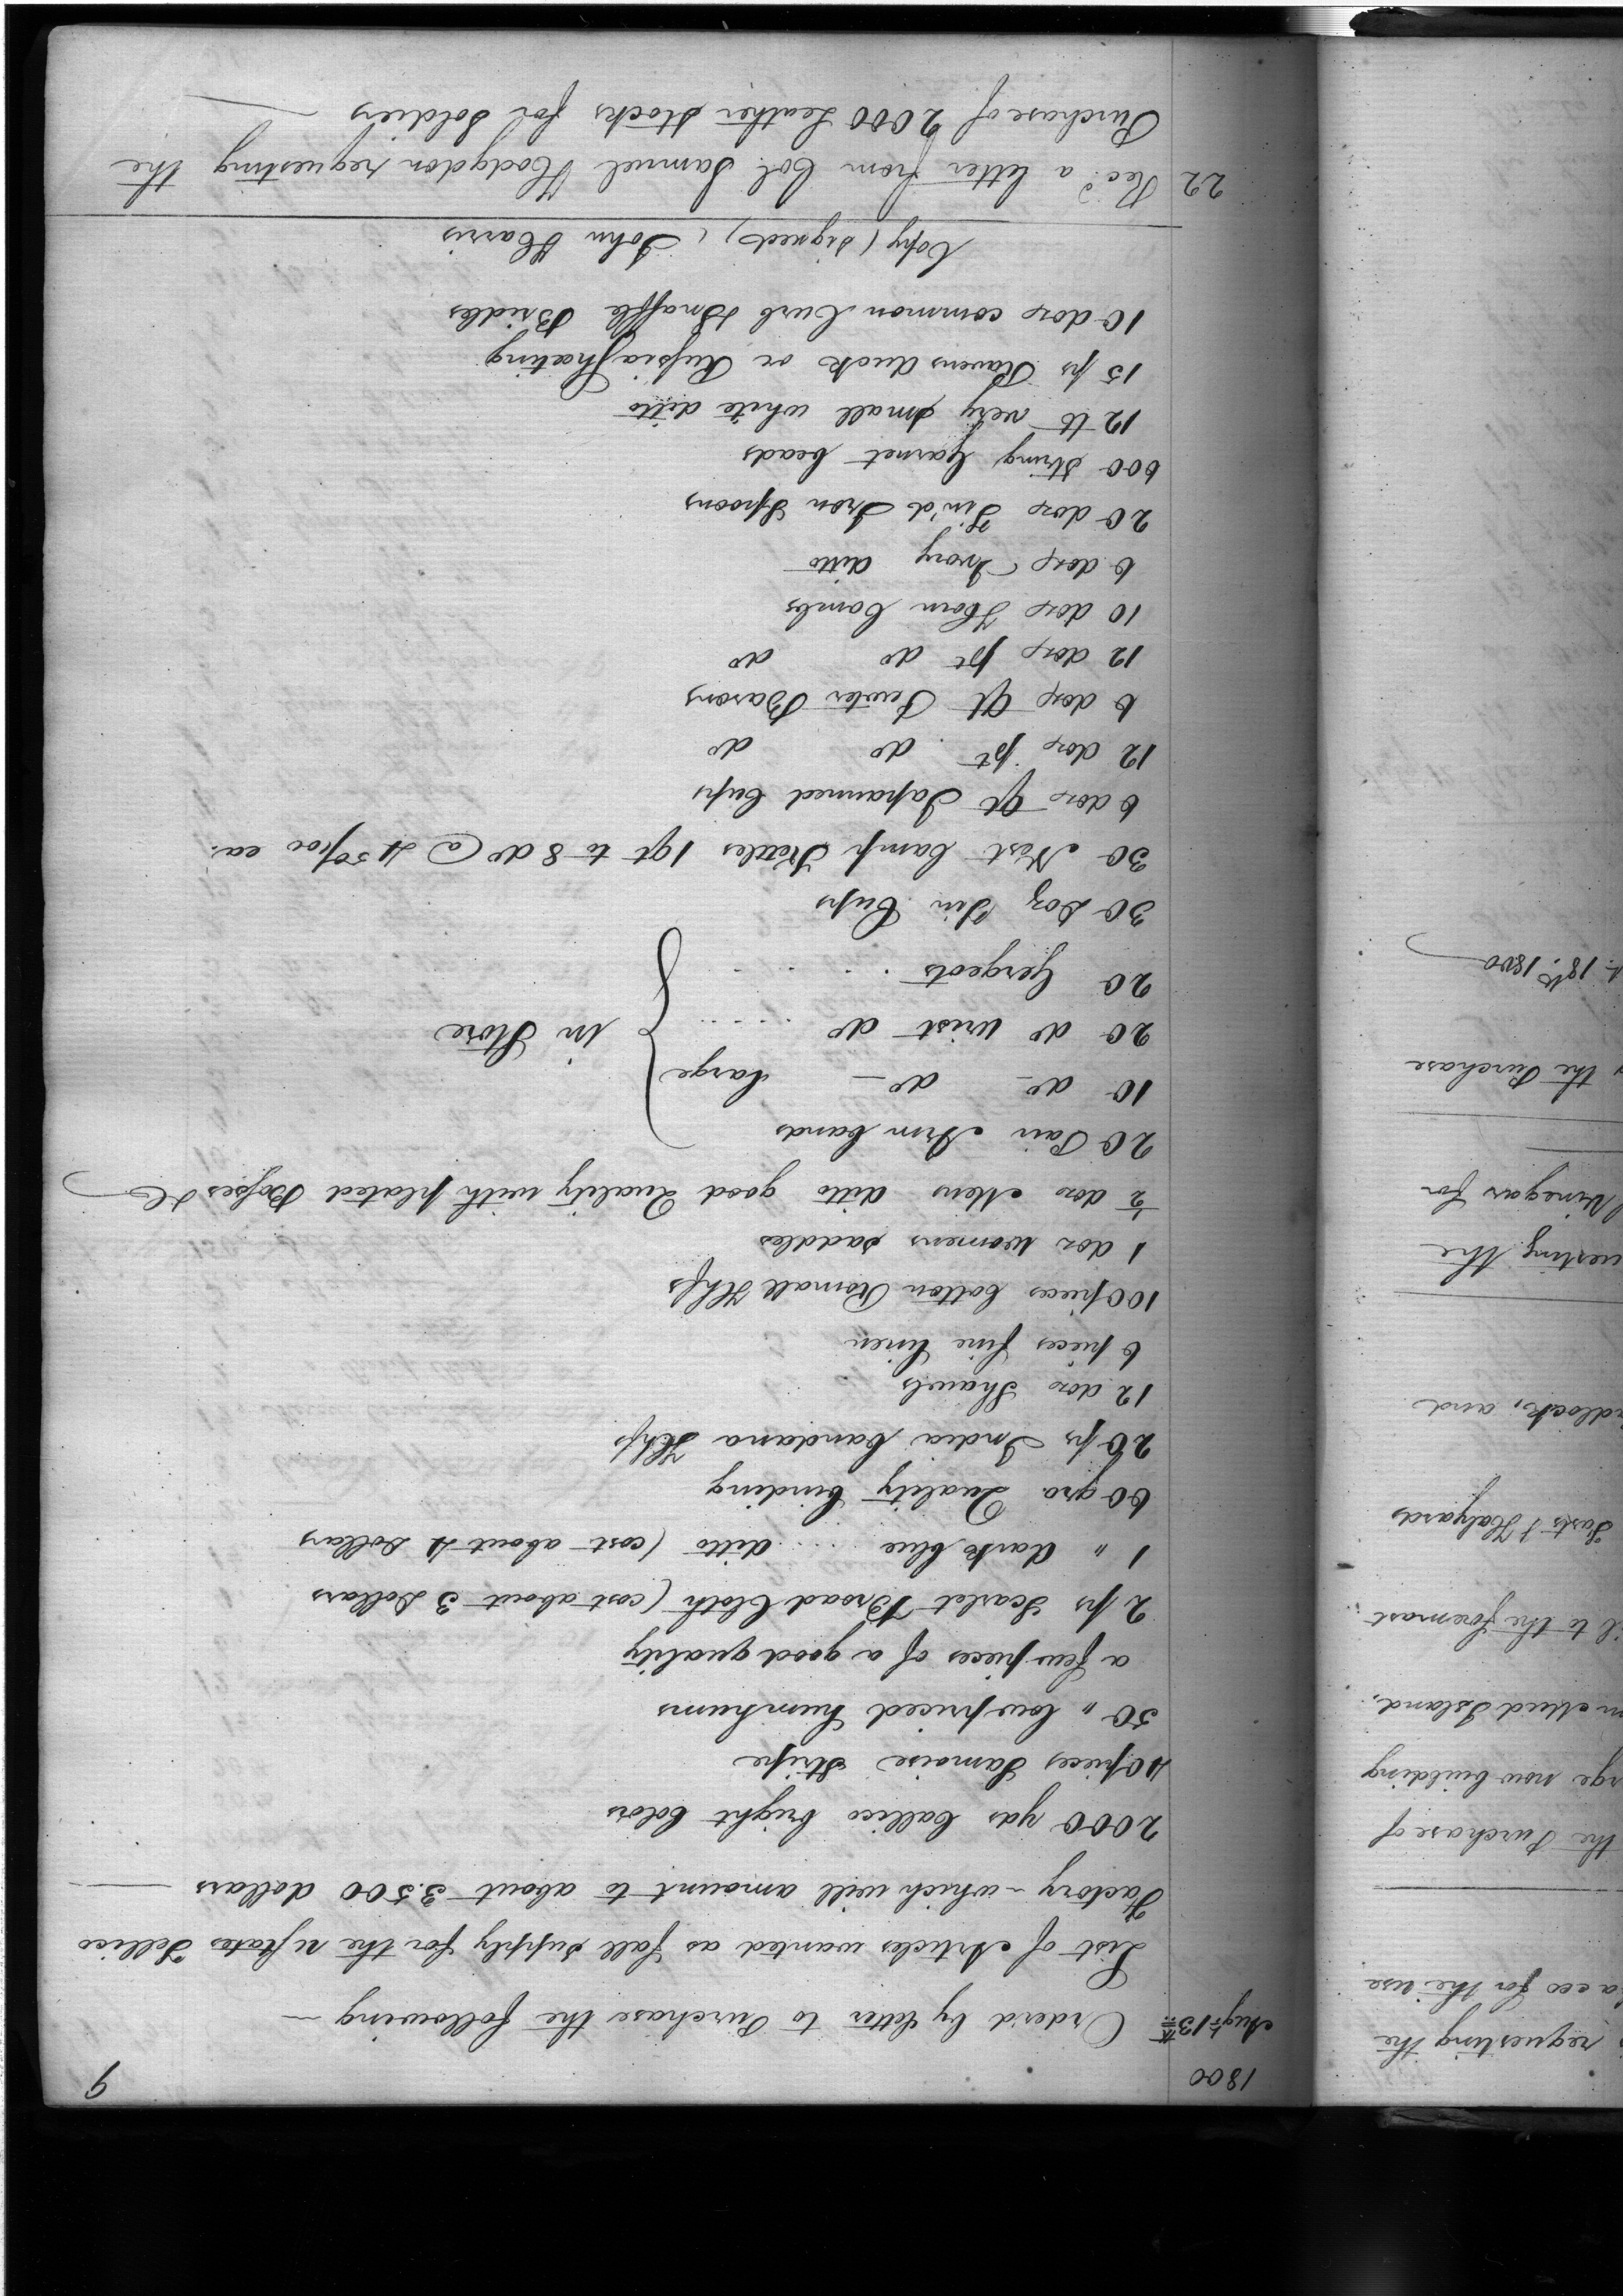 9
1800
Augt 13th Order'd by letter to Purchase the following —
List of Articles wanted as fall supply for the UStates Tellico
Factory — which will amount to about 3.500 dollars
2000 yds Callico bright Colors
40 pieces Siamoise Stripe
50 " low priced humhums
a few pieces of a good quality
2 ps Scarlet Broad Cloth (cost about 3 Dollars
1 " dark blue .... ditto (cost about 4 Dollars
60 gro Quality binding
20 ps India bandana Hkfs
12 doz Shawls
6 pieces fine linen
100 pieces Cotton Romall Hkfs
1 doz womens saddles
1/2 doz Mens ditto good Quality with plated Bosses &c
20 Pair Arm bands
10 do — do — large
20 do wrist do ....
20 Gorgets ....
in Store
30 Doz Tin Cups
30 Nest Camp Kettles 1 qt to 8 do @ 4 50/100 ea.
6 doz Qt Japanned Cups
12 doz pt do do
6 doz Qt Pewter Basons
12 doz pt do do
10 doz Horn Combs
6 doz Ivory ditto
20 doz Tin'd Iron Spoons
600 String Garnet beads
12 lb very small white ditto
15 ps Ravens duck or Russia Sheeting
10 doz common Curb & Snaffle Bridles
Copy (signed) John Harris
22 Recd a letter from Col Samuel Hodgdon requesting the
Purchase of 2000 Leather Stocks for Soldiers
requesting the
for the use
the Purchase of
now building
Mud Island.
to the foremast
& Halyards
and
the
Vinegar for
the Purchase
18th 1800